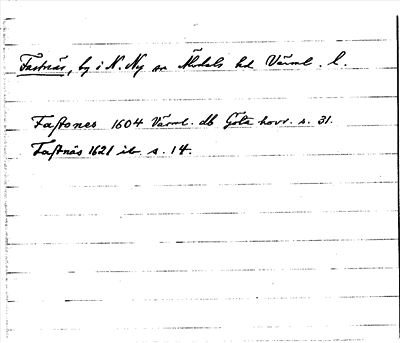 Fastnäs, by i N. Ny sn Älvdals hd Värml. l.
Fastones 1604 Värml. db Göta hovr. s. 31.
Fastnäs 1621 ib s. 14.